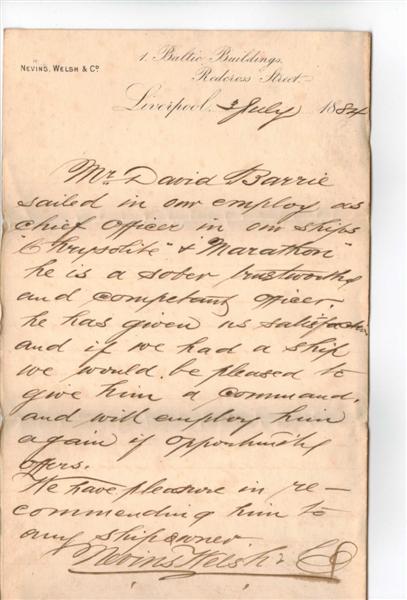 NEVINS, WELSH & Co
1, Baltic Buildings,
Redcross Street.
Liverpool, 3 July 1884
Mr. David Barrie
sailed in our employ as
chief Officer in our ships
"Chrysolite" & "Marathon"
he is a sober trustworthy
and competant officer.
he has given us satisfaction
and if we had a ship
we would be pleased to
give him a command,
and will employ him
again if opportunity
offers.
We have pleasure in re-
commending him to
any shipowner
Nevins Welsh & Co